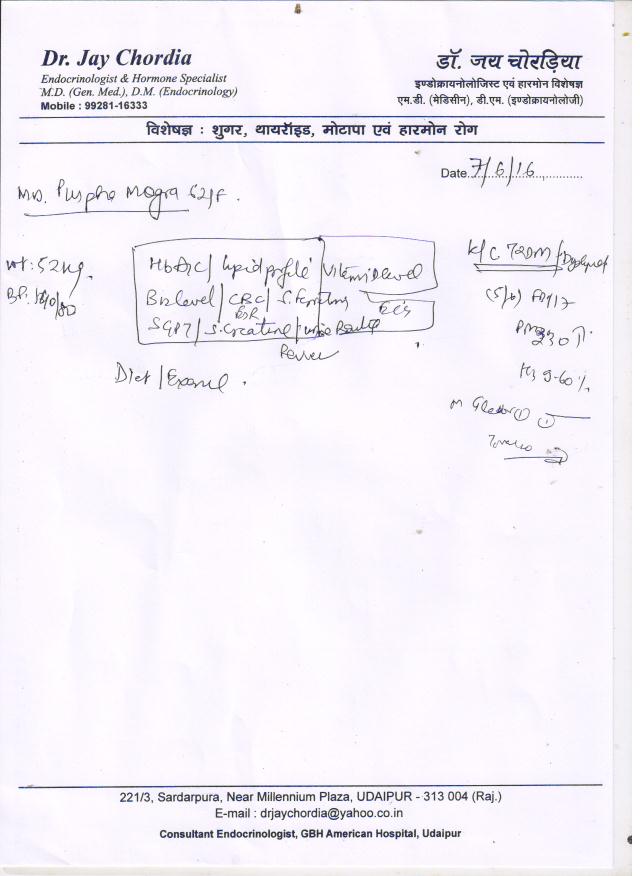 Dr. Jay Chordia
Endocrinologist & Hormone Specialist
M.D. (Gen. Med.), D.M. (Endocrinology)
Mobile : 99281-16333
डॉ. जय चोरड़िया
इण्डोक्रायनोलोजिस्ट एवं हारमोन विशेषज्ञ
एम.डी. (मेडिसीन), डी.एम. (इण्डोक्रायनोलोजी)
विशेषज्ञ : शुगर, थायरॉइड, मोटापा एवं हारमोन रोग
Date 7/6/16
Mrs. Puspha Mogra 62/F.
wt: 52kg.
HbA1C / Lipid profile / Vitamin D level
B12 level / CBC / S.
ESR
ECG
SGPT / S. Creatine / Urine Routine
Diet /
K/C T2DM /
(5/6)
230
9.60%
221/3, Sardarpura, Near Millennium Plaza, UDAIPUR - 313 004 (Raj.)
E-mail : drjaychordia@yahoo.co.in
Consultant Endocrinologist, GBH American Hospital, Udaipur